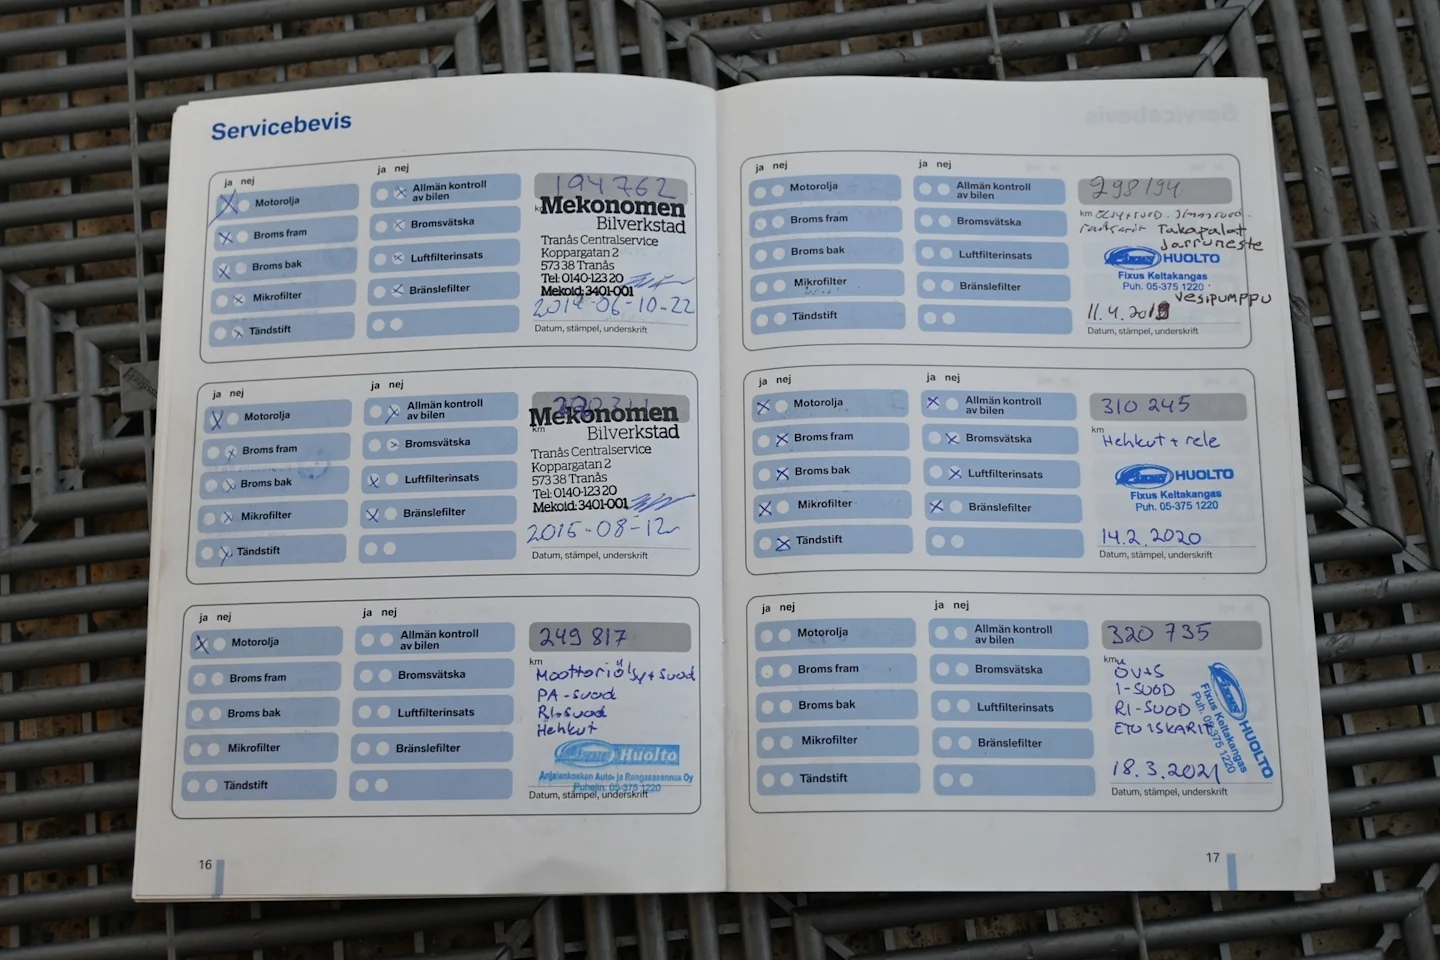 Servicebevis
ja nej
ja nej
Motorolja
Broms fram
Broms bak
Mikrofilter
Tändstift
Allmän kontroll
av bilen
Bromsvätska
Luftfilterinsats
Bränslefilter
194762
km
Mekonomen
Bilverkstad
Tranås Centralservice
Koppargatan 2
573 38 Tranås
Tel: 0140-123 20
Mekoid: 3401-001
Datum, stämpel, underskrift
ja nej
ja nej
Motorolja
Broms fram
Broms bak
Mikrofilter
Tändstift
Allmän kontroll
av bilen
Bromsvätska
Luftfilterinsats
Bränslefilter
km
Mekonomen
Bilverkstad
Tranås Centralservice
Koppargatan 2
573 38 Tranås
Tel: 0140-123 20
Mekoid: 3401-001
2015-08-12
Datum, stämpel, underskrift
ja nej
ja nej
Motorolja
Broms fram
Broms bak
Mikrofilter
Tändstift
Allmän kontroll
av bilen
Bromsvätska
Luftfilterinsats
Bränslefilter
249 817
km
Moottoriöljy + suod
PA-suod
RI-suod
Hehkut
Huolto
Anjalankosken Auto- ja Rengasasennus Oy
Puhelin. 05-375 1220
Datum, stämpel, underskrift
16
ja nej
ja nej
Motorolja
Broms fram
Broms bak
Mikrofilter
Tändstift
Allmän kontroll
av bilen
Bromsvätska
Luftfilterinsats
Bränslefilter
298194
km
Takapalat
Jarruneste
HUOLTO
Fixus Keltakangas
Puh. 05-375 1220
Vesipumppu
Datum, stämpel, underskrift
ja nej
ja nej
Motorolja
Broms fram
Broms bak
Mikrofilter
Tändstift
Allmän kontroll
av bilen
Bromsvätska
Luftfilterinsats
Bränslefilter
310 245
km
Hehkut + rele
HUOLTO
Fixus Keltakangas
Puh. 05-375 1220
14.2.2020
Datum, stämpel, underskrift
ja nej
ja nej
Motorolja
Broms fram
Broms bak
Mikrofilter
Tändstift
Allmän kontroll
av bilen
Bromsvätska
Luftfilterinsats
Bränslefilter
320 735
km
ÖV+S
I-SUOD
RI-SUOD
ETU ISKARIT
HUOLTO
Fixus Keltakangas
Puh. 05-375 1220
18.3.2021
Datum, stämpel, underskrift
17